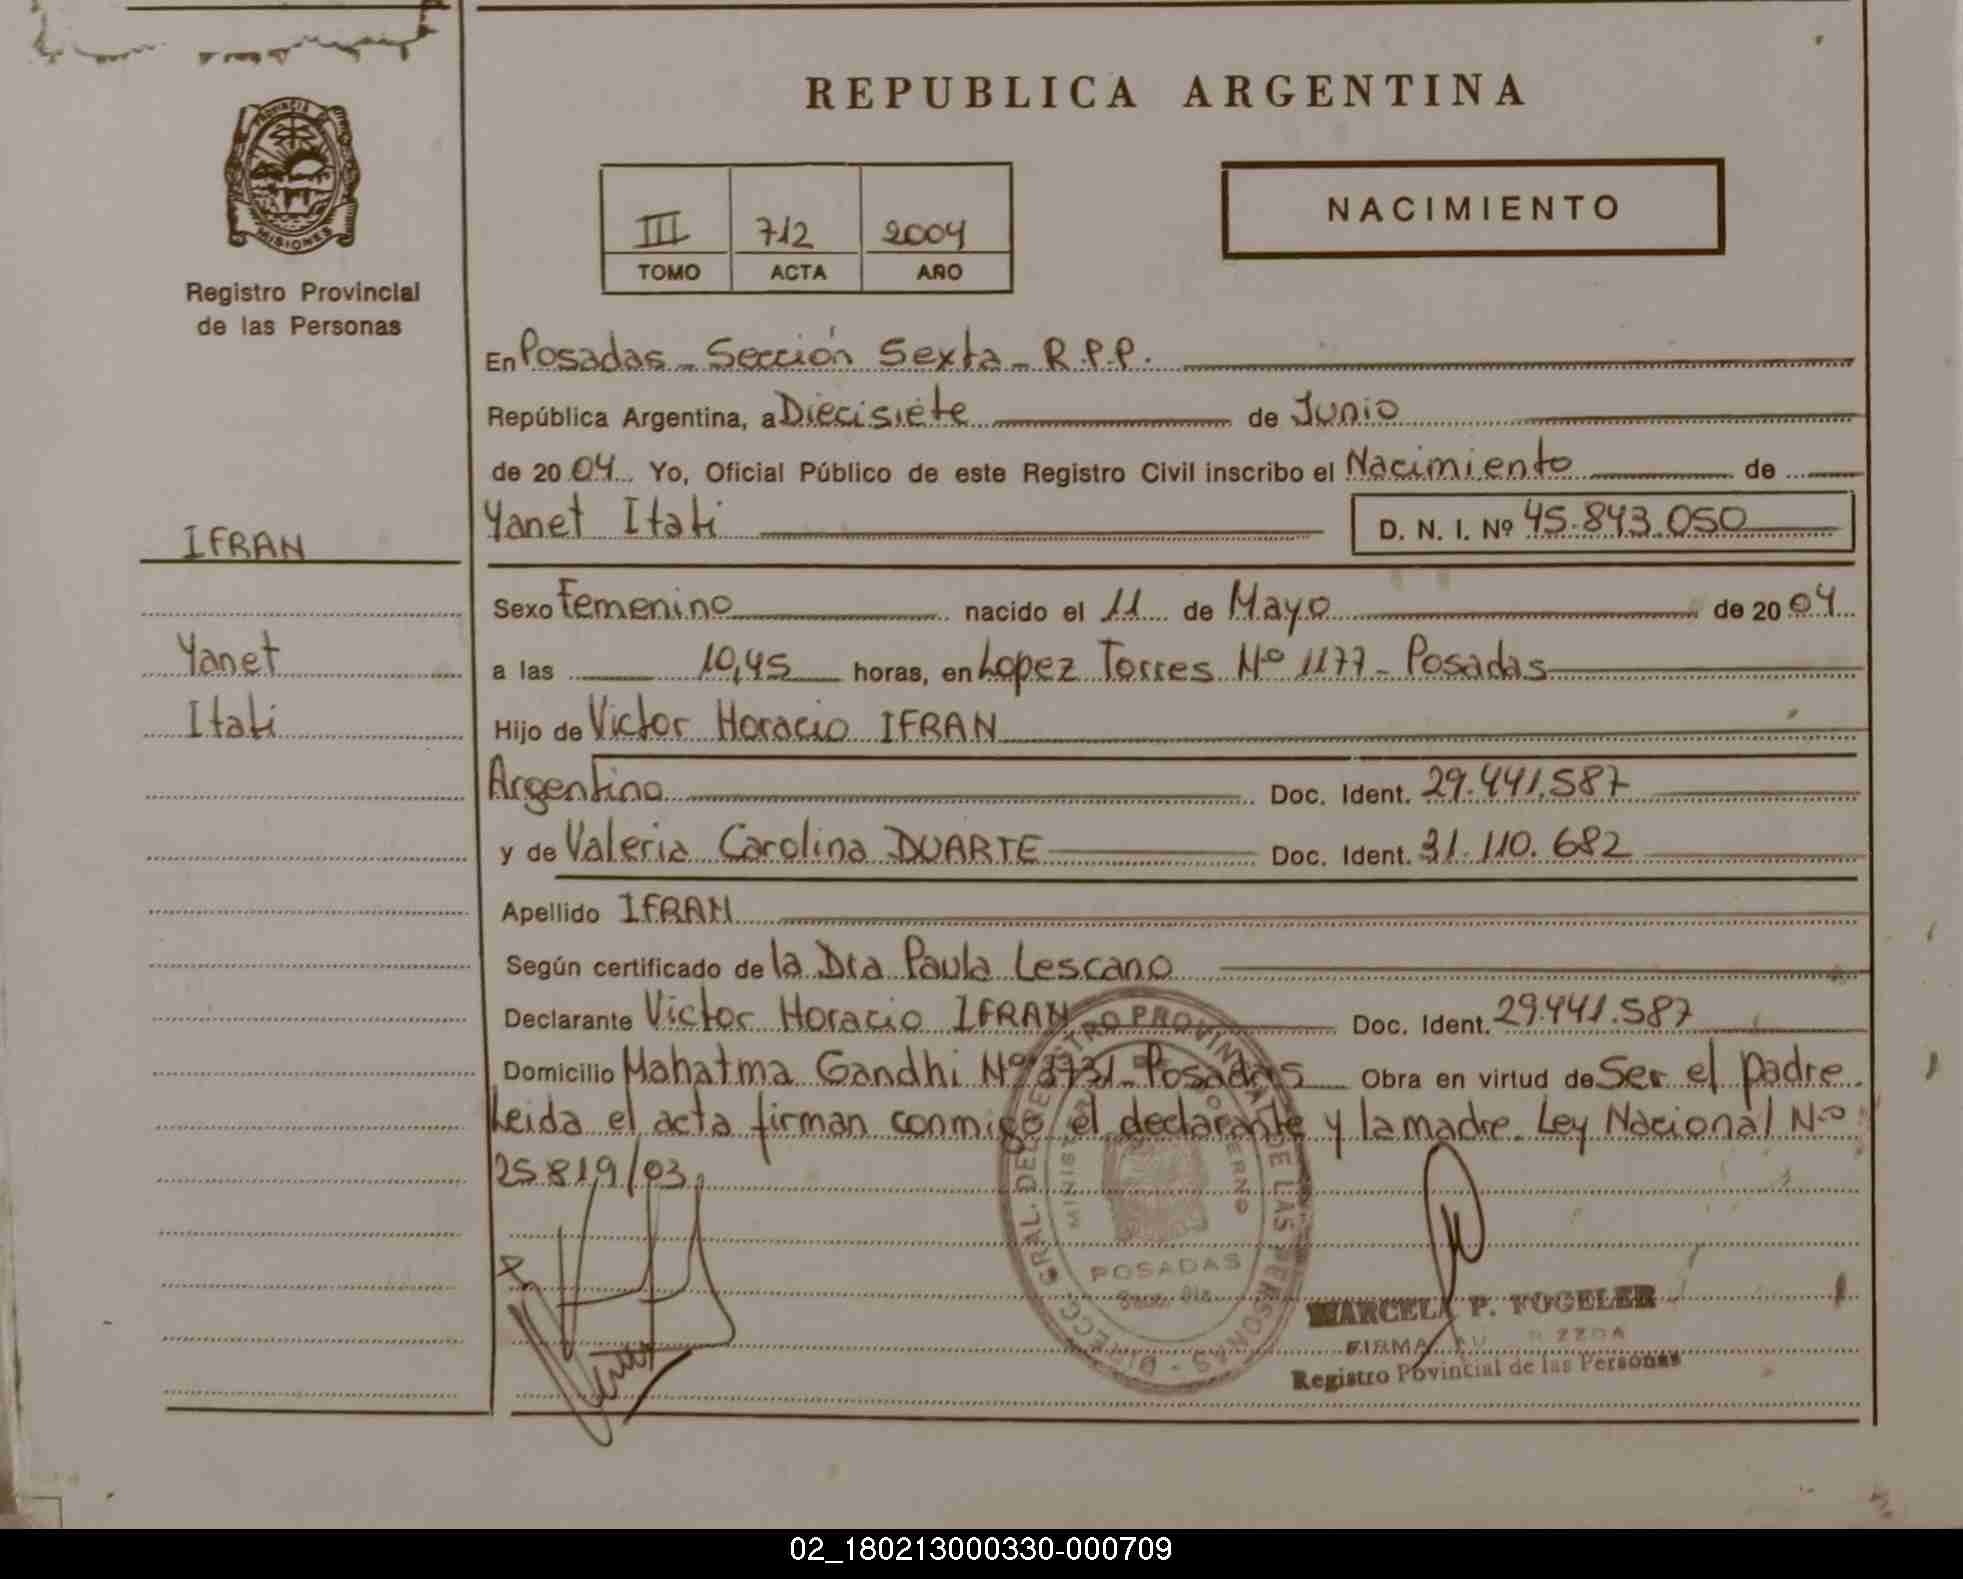 REPUBLICA ARGENTINA
PROVINCIA DE
MISIONES
Registro Provincial
de las Personas
III 712 2004
TOMO ACTA AÑO
NACIMIENTO
En Posadas - Sección Sexta - R.P.P.
República Argentina, a Diecisiete de Junio
de 2004 Yo, Oficial Público de este Registro Civil inscribo el Nacimiento de
Yanet Itati D. N. I. Nº 45.843.050
IFRAN
Yanet
Itati
Sexo Femenino nacido el 11 de Mayo de 2004
a las 10,45 horas, en Lopez Torres Nº 1177 - Posadas
Hijo de Victor Horacio IFRAN
Argentino Doc. Ident. 29.441.587
y de Valeria Carolina DUARTE Doc. Ident. 31.110.682
Apellido IFRAN
Según certificado de la Dra Paula Lescano
Declarante Victor Horacio IFRAN Doc. Ident. 29.441.587
Domicilio Mahatma Gandhi Nº 3731 - Posadas Obra en virtud de Ser el padre
Leida el acta firman conmigo el declarante y la madre. Ley Nacional Nº
25819/03
DIRECC. GRAL. DEL REGISTRO PROVINCIAL DE LAS PERSONAS
POSADAS
MARCELA P. FOGELER
FIRMA
Registro Povincial de las Personas
02_180213000330-000709